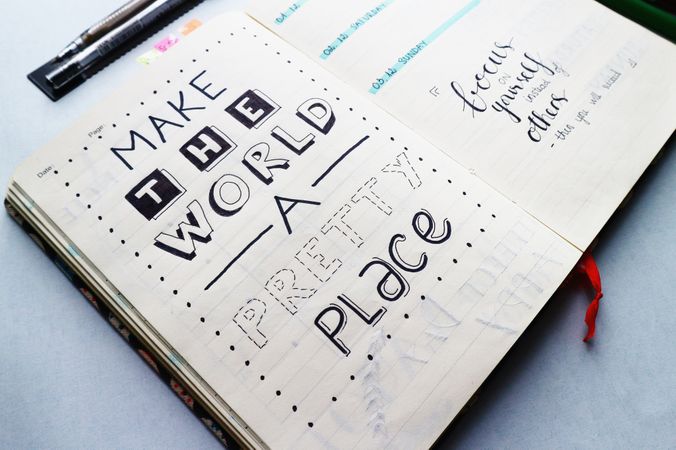 Date:
Page:
MAKE
THE
WORLD
A
PRETTY
PLace
02. 12 SATURDAY
03. 12 SUNDAY
IF
focus
on
yourself
instead of
others
- then you will